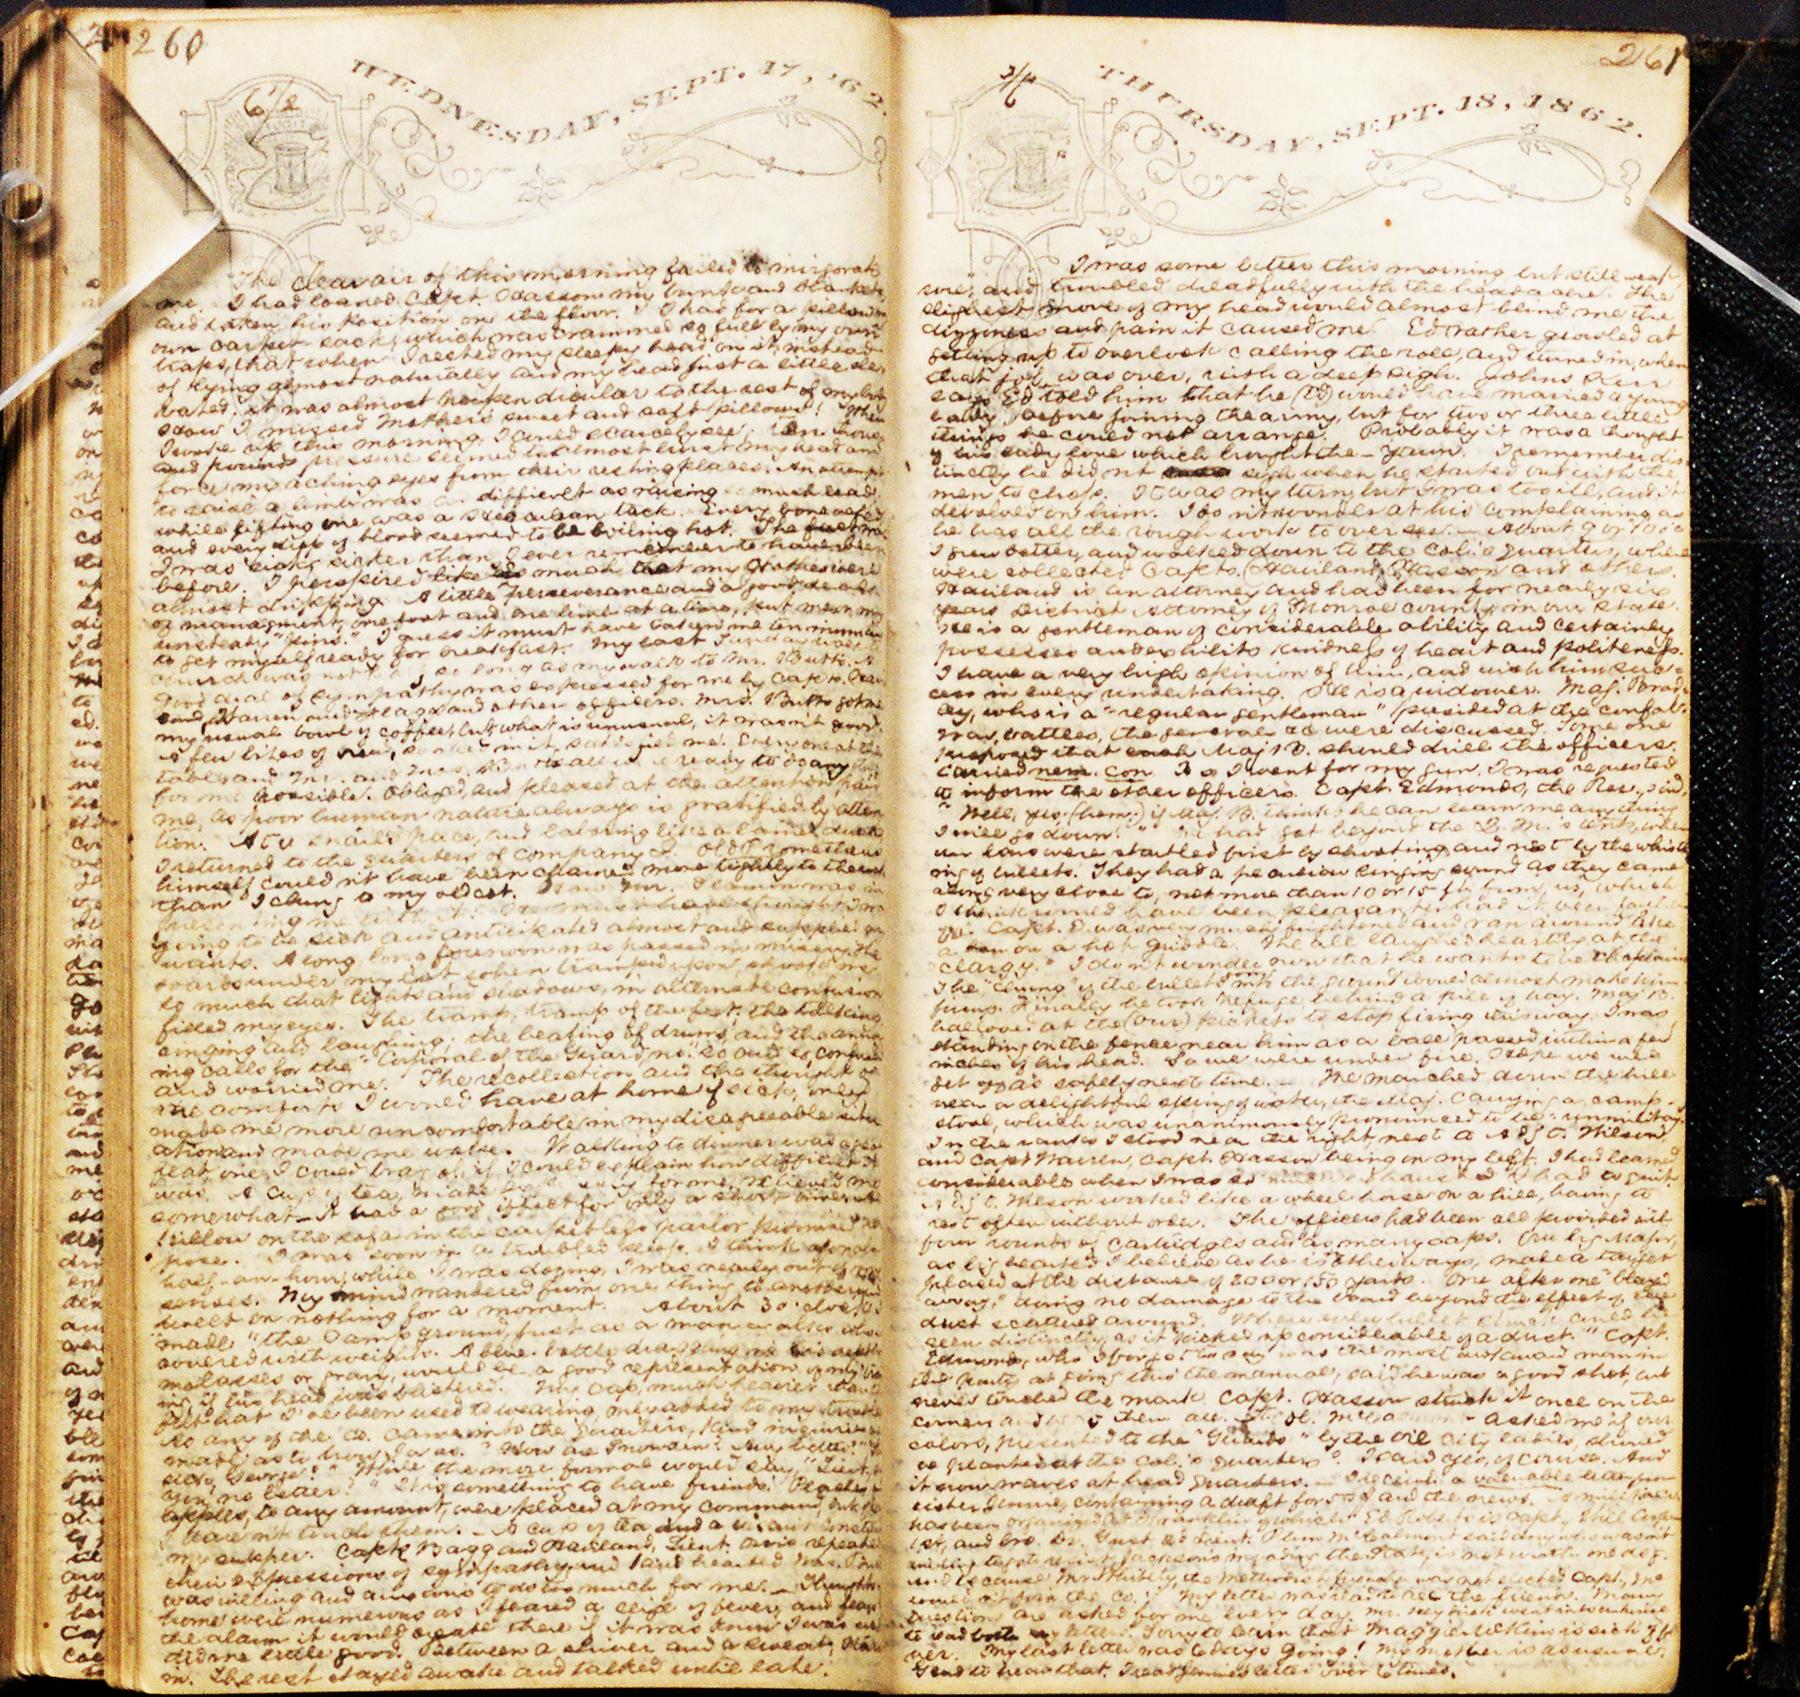 260
WEDNESDAY, SEPT. 17, '62.
6 1/2
The clear air of this morning failed to invigorate
me. I had loaned Capt. Hasson my bunk and blankets,
and taken his position on the floor. I had for a pillow
own carpet sack, which was crammed so full by my
traps, that when I rested my sleepy head on it, instead
of lying almost naturally and my head just a little ele-
vated, it was almost perpendicular to the rest of my body
How I missed Mother's sweet and soft pillows! When
I woke up this morning, I could scarcely see. Ten thous
and pounds pressure seemed to almost burst my head and
force my aching eyes from their resting places. An attempt
to raise a limb was as difficult as raising so much lead,
while lifting one was a Herculean task. Every bone ached
and every drop of blood seemed to be boiling hot. The
I was sick, sicker than I ever remember to have been
before. I perspired like so much that my clothes were
almost dripping. A little perseverance and a good deal
of management, one foot and one limb at a time, put me on my
unsteady "pins." I guess it must have taken me ten minutes
to get myself ready for breakfast. My last Sunday walk to
church was not so long as my walk to Mr. Butts. A
good deal of sympathy was expressed for me by Capts.
and Warren and and other officers. Mrs. Butts got me
my usual bowl of coffee, but what is unusual, it wasn't good.
A few bites of soaked in it, satisfied me. Every one at the
table and Mr. and Mrs. Butts all were ready to do any
for me possible. Obliged, and pleased at the attention paid
me, as poor human nature always is gratified by atten
tion. At a snail's pace, and laboring like a lamed duck
I returned to the quarters of Company I.
himself could n't have been chained more tightly to the
than I clung to my old cot.
going to be sick and anticipated almost and supplied my
wants. A long long forenoon was passed in misery. The
boards under my cot when tramped upon, shook me
so much that lights and shadows, in alternate confusion
filled my eyes. The tramp, tramp of the feet, the talking
singing and laughing, the beating of drums, and the
ing calls for the "Corporal of the Guard, no. so and so confused
and worried me. The recollection and the thought of
the comforts I would have at home if sick, only
made me more uncomfortable in my disagreeable situ
ation and made me worse. Walking to dinner was a
feat, one, I could brag of, if I could explain how difficult it
was. A cup of tea, made for me, relieved me
somewhat. It had a good effect for only a short time. A
pillow on the sofa in the carpetless parlor promised re
pose. I was soon in a troubled sleep. I think for
half-an-hour, while I was dozing, I was nearly out of my
senses. My mind wandered from one thing to another and
dwelt on nothing for a moment. About 3 o'clock I
"made" the Camp ground, just as a man walks who
covered with weights. A blue-bottle dragging
molasses or gravy, would be a good representation of my
me, if his head was blistered. My cap, much heavier than
felt hat I've been used to wearing, only added to my trouble
As any of the Co. came into the quarters, kind inquiries
made as to how I was. "How are Snowden? Any better?"
sick, George?" While the more formal would say, "Lieut.
you no better?" It is something to have friends. Peaches
apples, to any amount, were placed at my command, but
I have n't touched them. A cup of tea and a
my supper. Capts. Bagg and Haviland, Lieut. repeated
their expressions of sympathy and kind hearted Mrs.
was willing and anxious to do too much for me. Thoughts
home were numerous as I feared a siege of fever, and fear
the alarm it would create there if it was known I was
did me little good. Between a shiver and a sweat,
in. The rest stayed awake and talked until late.
261
THURSDAY, SEPT. 18, 1862.
I was some better this morning but still weak
sore, and troubled dreadfully with the headache. The
slightest move of my head would almost blind me, the
dizziness and pain it caused me. Ed rather growled at
getting up to overlook calling the roll, and turned in, when
that job was over, with a deep sigh. Johns Kerr
says Ed told him that he (Ed) would have married a young
lady before joining the army, but for two or three little
things he could not arrange. Probably it was a thought
of his lady love which brought the - yawn. I remember dis
tinctly he did n't sigh when he started out with the
men to chop. It was my turn, but I was too ill, and it
devolved on him. I do n't wonder at his complaining as
he has all the rough work to oversee. About 9 or 10 o'c
I grew better, and walked down to the Col.'s quarters, where
were collected Capts. Haviland, Hasson and others.
Haviland is an attorney and had been for nearly six
years District Attorney of Monroe county in our state.
He is a gentleman of considerable ability and certainly
possesses and exhibits kindness of heart and politeness.
I have a very high opinion of him, and wish him suc-
cess in every undertaking. He is a widower. Maj. Brad-
ley, who is a "regular gentleman" presided at the confab.
War, battles, the general &c were discussed. Some one
proposed that Maj. B. should drill the officers.
Carried nem. con. As I went for my gun, I was requested
to inform the other officers. Capt. Edmonds, the Rev., said,
"Well, yes, (hem;) if Maj. B. thinks he can learn me any thing
I will go down." We had got beyond the Q. M.'s tent, when
our ears were startled first by shooting, and next by the whist
ing of bullets. They had a peculiar singing sound as they came
along very close to, not more than 10 or 15 ft. from, us, which
I think would have been pleasanter had it been farther
off. Capt. E. was very much frightened and ran around like
a hen on a hot griddle. We all laughed heartily at the
"clargy." I don't wonder now that he wants to be chaplain
The "ching" of the bullets into the ground would almost make him
jump. Finally he took refuge behind a pile of hay. Maj. B.
hallooed at the (our) pickets to stop firing this way. I was
standing on the fence near him as a ball passed within a few
inches of his head. So we were under fire. I hope we will
get off as safely next time. We marched down the hill
near a delightful spring of water, the Maj. carrying a camp-
stool, which was unanimously pronounced to be "unmilitary."
In the ranks I stood near the right, next to Adjt. Wilson
and Capt Warren, Capt. Hasson being on my left. I had learned
considerable when I was so exhausted I had to quit.
Adjt. Wilson worked like a wheel horse on a hill, having to
rest often without order. The officers had been all provided with
four rounds of cartridges and as many caps. Our big Major,
as big hearted I believe as he is otherways, made a target
placed at the distance of 200 or 150 yards. One after one "blazed
away," doing no damage to the board beyond the effect of the
dust scattered around. Where every bullet struck could be
seen distinctly, as it "kicked up considerable of a dust." Capt.
Edmonds, who I forgot to say was the most awkward man in
the ranks at going thro' the manual, said he was a good shot, but
never touched the mark. Capt. Hasson struck it once on the
corner and beat them all. asked me if our
colors, presented to the "Guards" by the Oil City ladies, should
be planted at the Col.'s quarters. I said yes, of course. And
it now waves at head quarters. I received a valuable letter from
sister Jennie, containing a draft for $50 and the news. A
has been organized at Franklin of which Ed Roberts is Capt.,
1st, and bro. Dr. Gust 2d Lieut.
My letter was read to all the friends. Many
questions are asked for me every day.
to read both my letters. Sorry to learn that Maggie is sick of
My last letter was 6 days going! My mother is as usual.
Glad to hear that. I read Jennie's letter over 6 times.